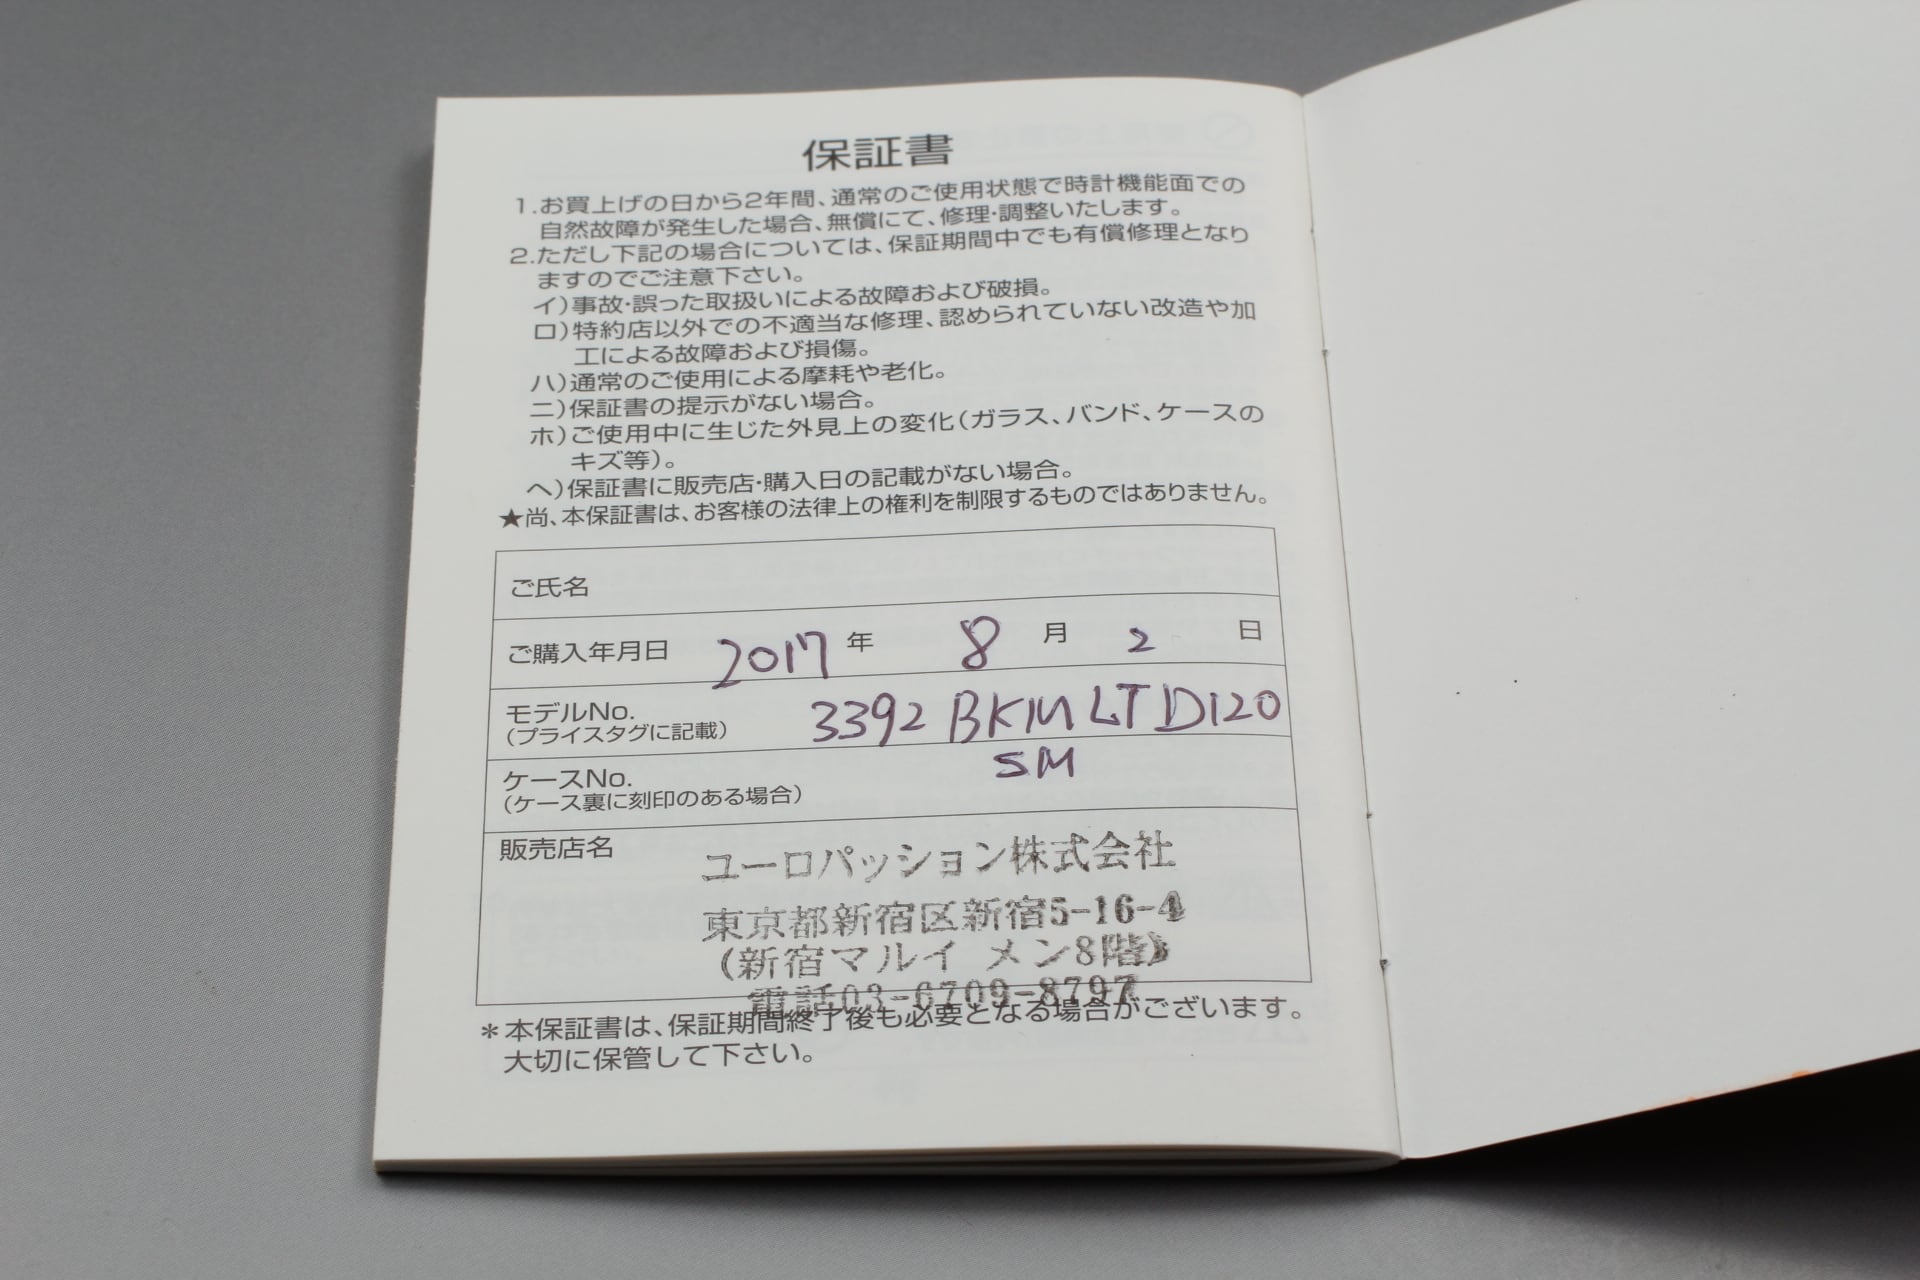 保証書
1.お買上げの日から2年間、通常のご使用状態で時計機能面での
自然故障が発生した場合、無償にて、修理・調整いたします。
2.ただし下記の場合については、保証期間中でも有償修理となり
ますのでご注意下さい。
イ)事故・誤った取扱いによる故障および破損。
ロ)特約店以外での不適当な修理、認められていない改造や加
工による故障および損傷。
ハ)通常のご使用による摩耗や老化。
ニ)保証書の提示がない場合。
ホ)ご使用中に生じた外見上の変化(ガラス、バンド、ケースの
キズ等)。
ヘ)保証書に販売店・購入日の記載がない場合。
★尚、本保証書は、お客様の法律上の権利を制限するものではありません。
ご氏名
ご購入年月日 2017 年 8 月 2 日
モデルNo. 3392 BKM LTD120
(プライスタグに記載)
SM
ケースNo.
(ケース裏に刻印のある場合)
販売店名 ユーロパッション株式会社
東京都新宿区新宿5-16-4
(新宿マルイ メン8階)
電話03-6709-8797
*本保証書は、保証期間終了後も必要となる場合がございます。
大切に保管して下さい。